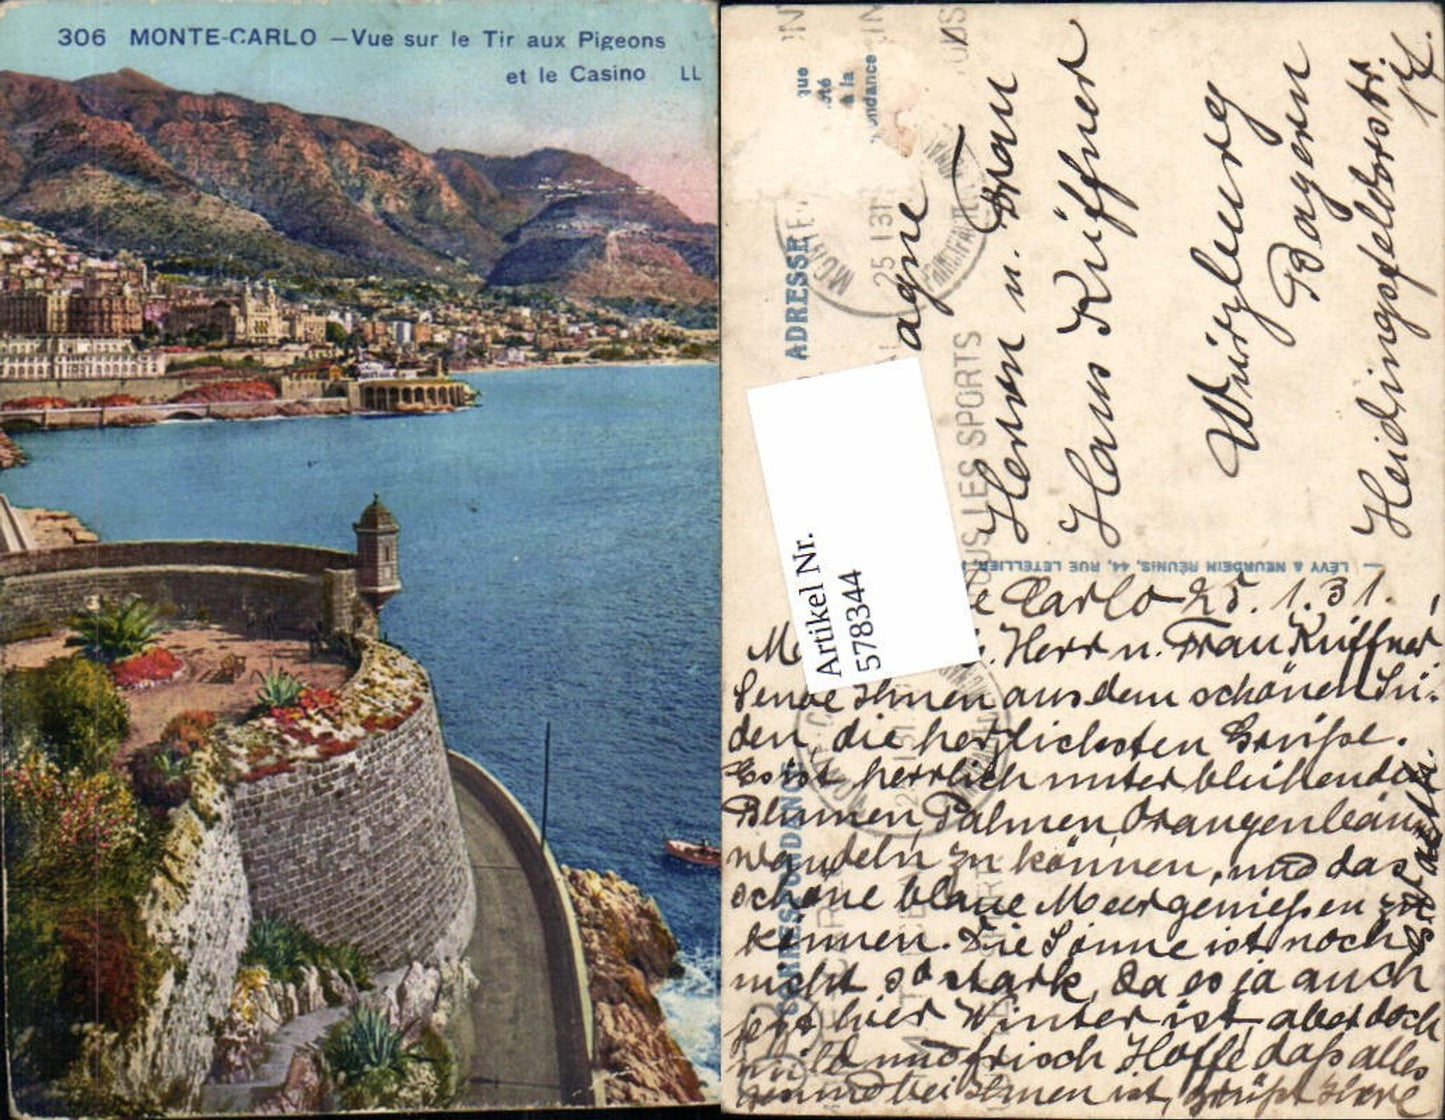 306 MONTE-CARLO — Vue sur le Tir aux Pigeons
et le Casino LL
ADRESSE
CORRESPONDANCE
LÉVY & NEURDEIN RÉUNIS, 44, RUE LETELLIER
TOUS LES SPORTS
25 I 31
Artikel Nr.
5783344
Herrn u. Frau
Hans Küffner
Würzburg
Bayern
Heidingsfelderstr.
Carlo 25.1.31.
Herr u. Frau Küffner!
Sende Ihnen aus dem schönen Sü-
den, die herzlichsten Grüße.
Es ist herrlich unter blühenden
Blumen, Palmen Orangenbäum
wandeln zu können, und das
schöne blaue Meer genießen zu
können. Die Sonne ist noch
nicht so stark, da es ja auch
jetzt hier Winter ist, aber doch
mild und frisch Hoffe, daß alles
gesund bei Ihnen ist, grüßt Ihre